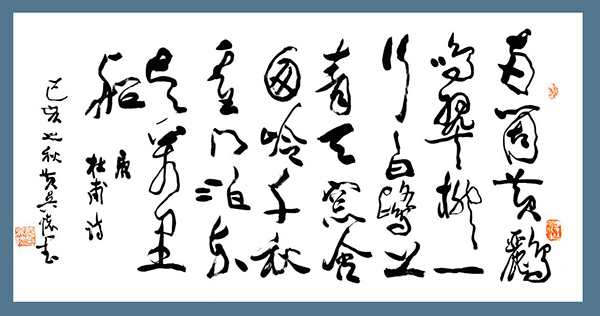 两箇黄鸝
鳴翠柳一
行白鷺上
青天窓含
西岭千秋
雪门泊东
吴万里
船
唐
杜甫诗
己亥之秋黄
书